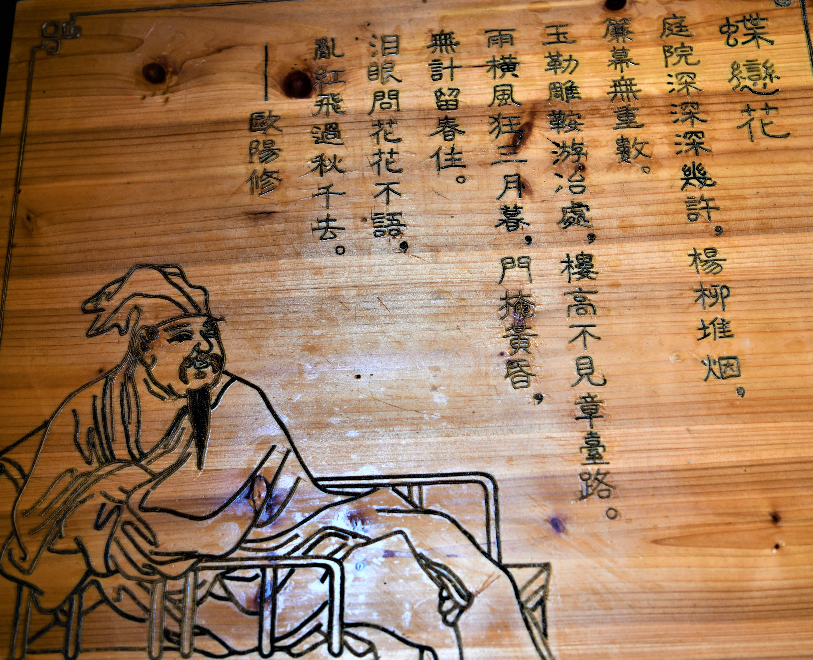 蝶戀花
庭院深深深幾許，楊柳堆烟，
簾幕無重數。
玉勒雕鞍游冶處，樓高不見章臺路。
雨橫風狂三月暮，門掩黃昏，
無計留春住。
泪眼問花花不語，
亂紅飛過秋千去。
——歐陽修